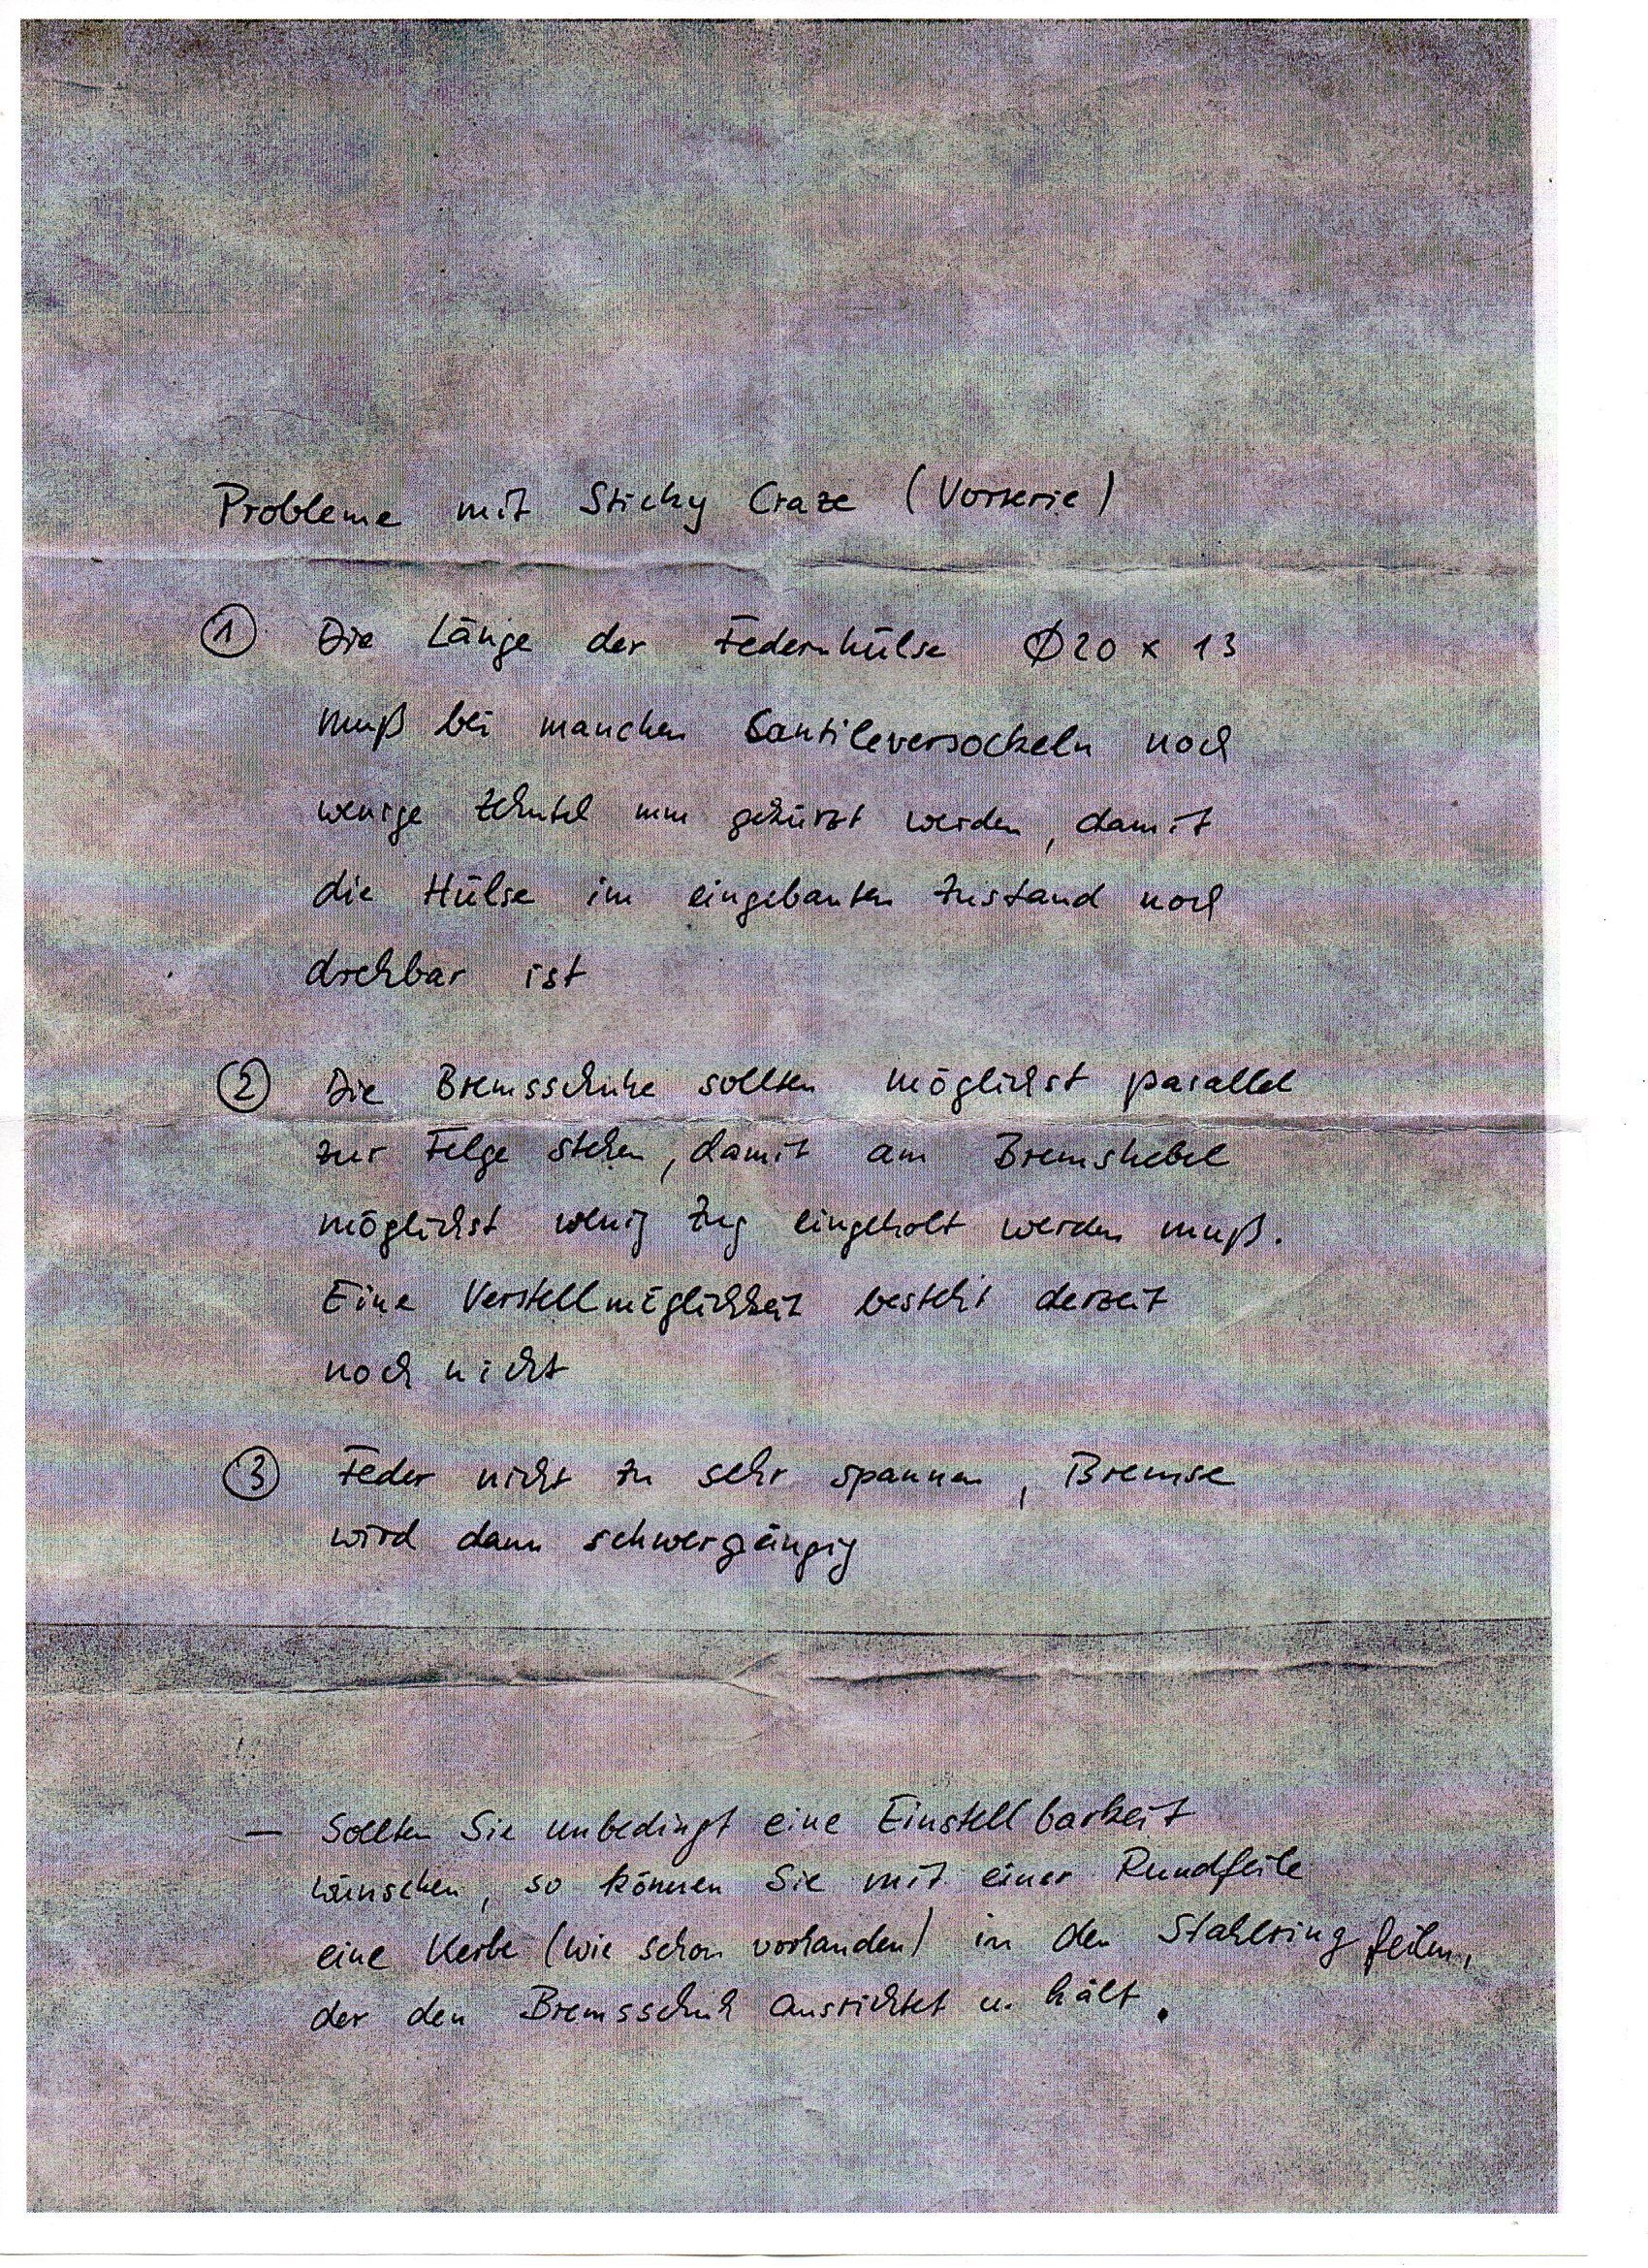 Probleme mit Sticky Craze (Vorserie)
① Die Länge der Federnhülse Ø20 x 13
muß bei manchen Cantileversockeln noch
wenige Zehntel mm gekürzt werden, damit
die Hülse im eingebauten Zustand noch
drehbar ist
② Die Bremsschuhe sollten möglichst parallel
zur Felge stehen, damit am Bremshebel
möglichst wenig Zug eingeholt werden muß.
Eine Verstellmöglichkeit besteht derzeit
noch nicht
③ Feder nicht zu sehr spannen, Bremse
wird dann schwergängig
— Sollten Sie unbedingt eine Einstellbarkeit
wünschen, so können Sie mit einer Rundfeile
eine Kerbe (wie schon vorhanden) in den Stahlring feilen,
der den Bremsschuh ausrichtet u. hält.